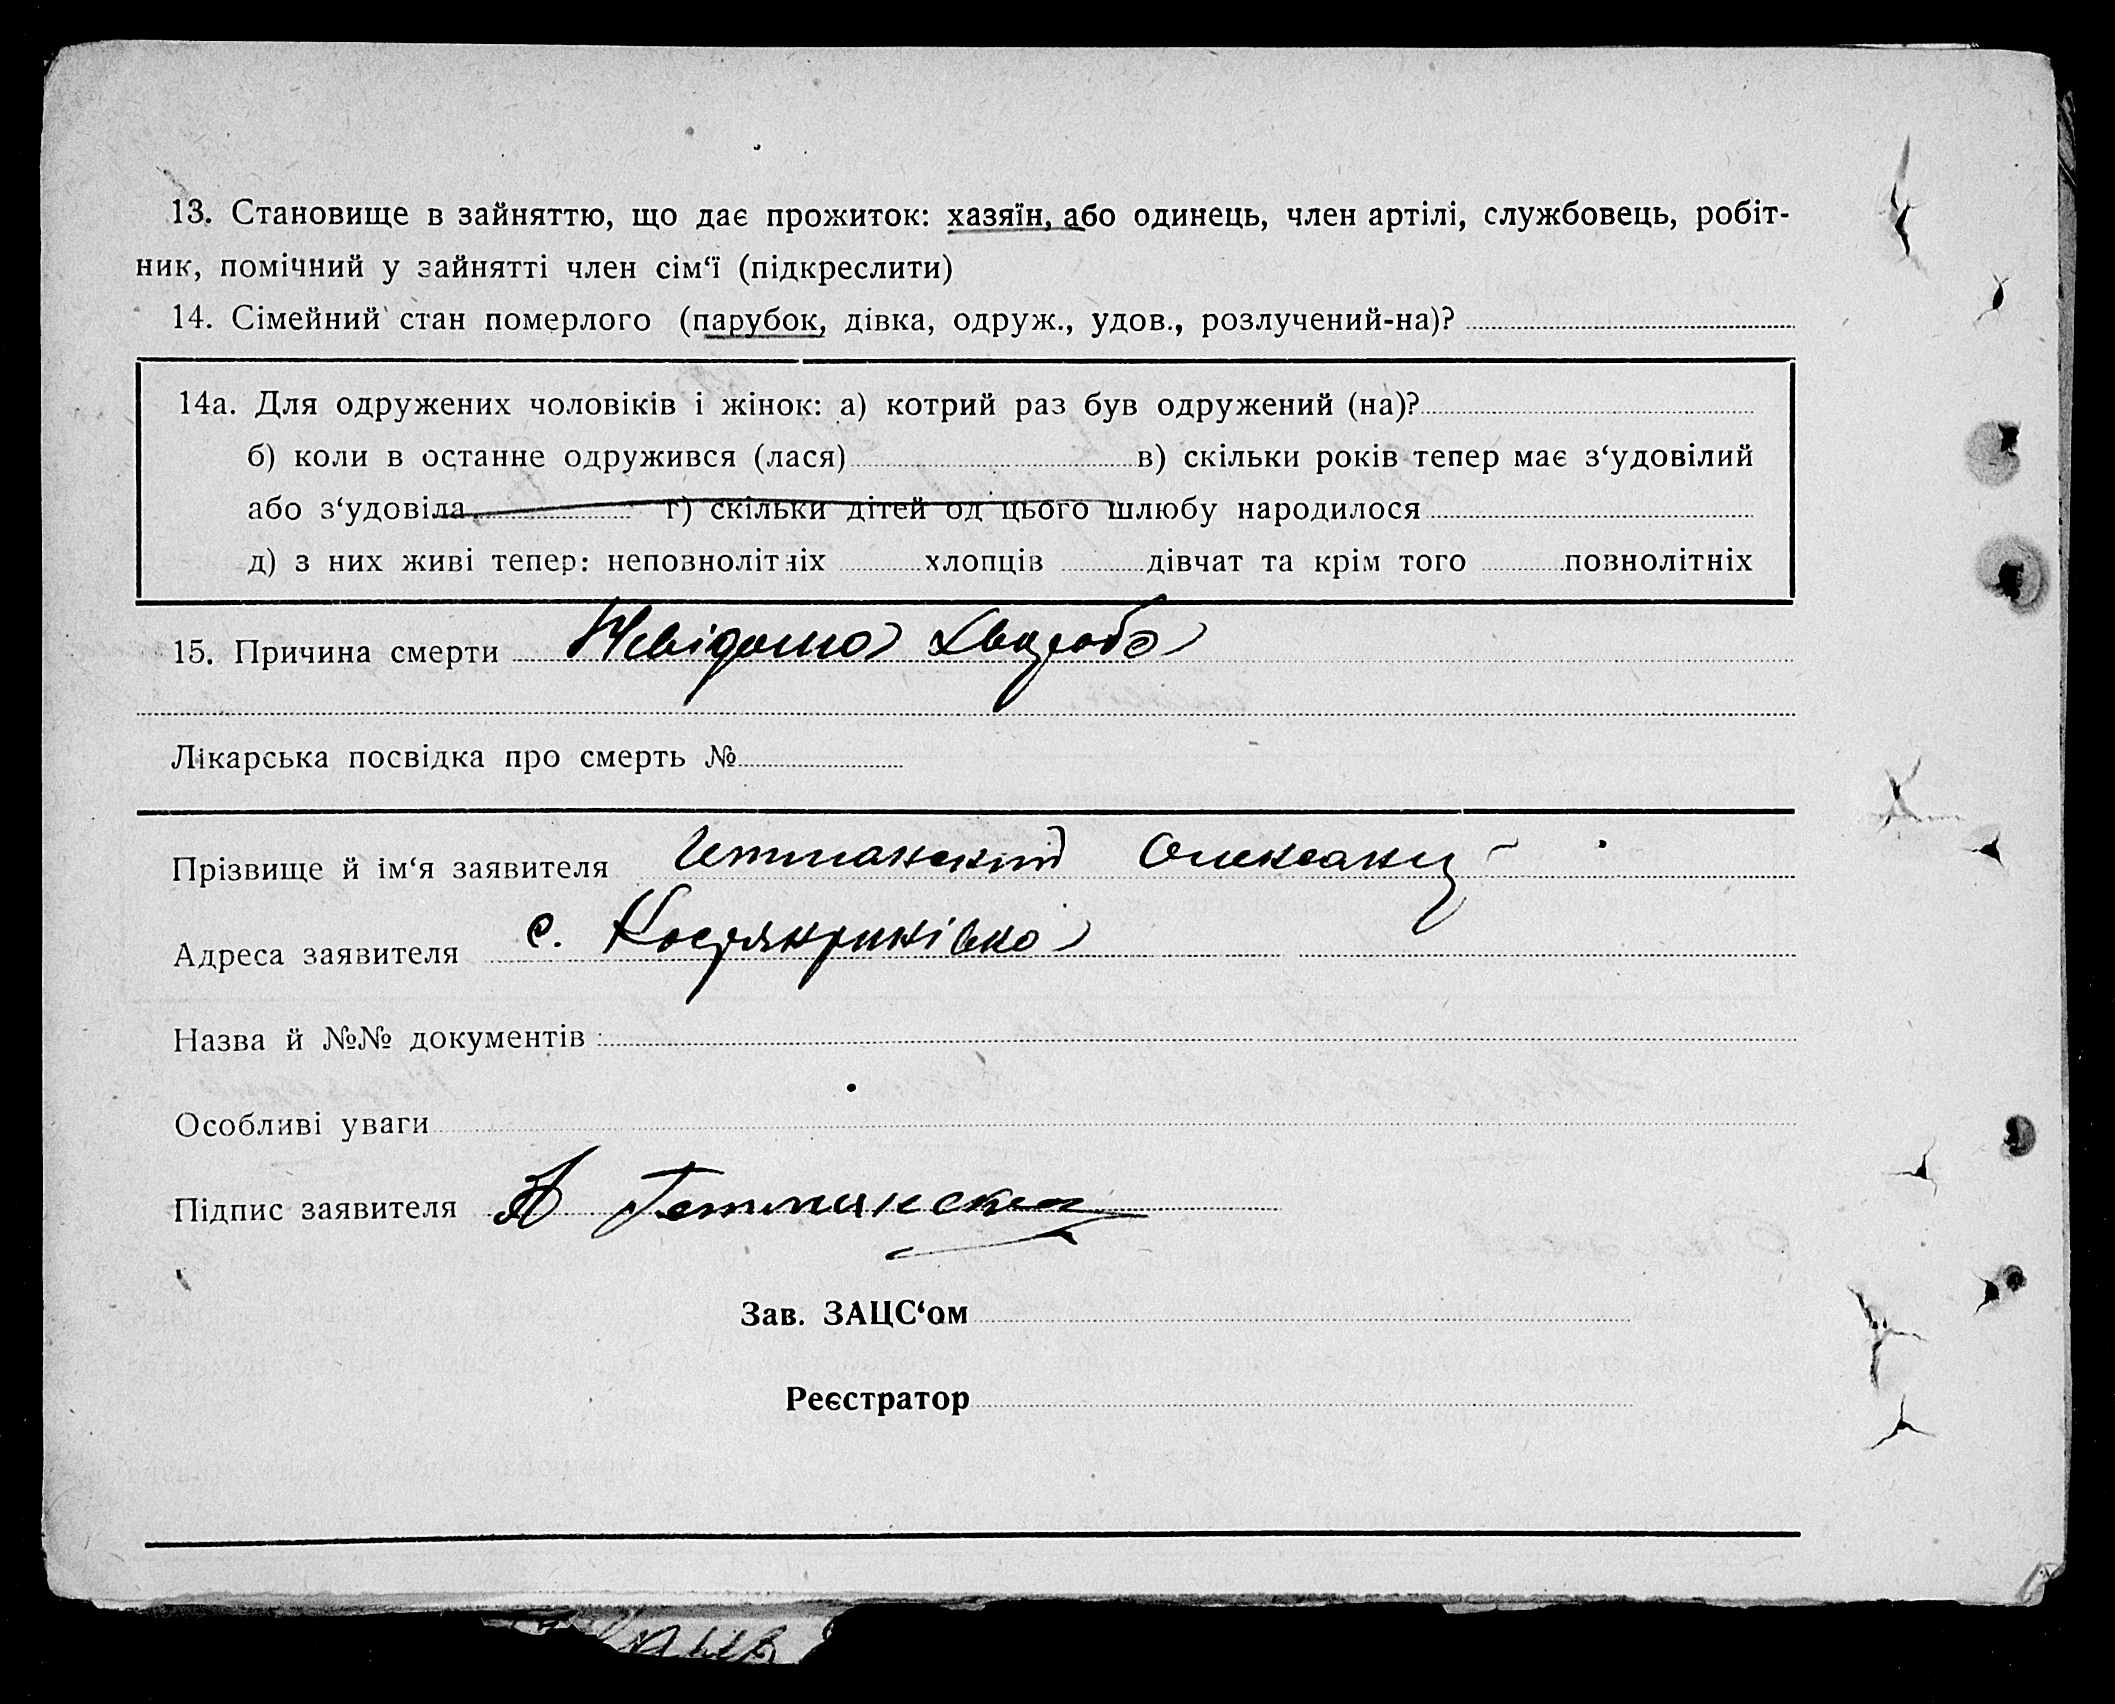 13. Становище в зайняттю, що дає прожиток: хазяїн, або одинець, член артілі, службовець, робіт-
ник, помічний у зайнятті член сім‘ї (підкреслити)
14. Сімейний стан померлого (парубок, дівка, одруж., удов., розлучений-на)?
14а. Для одружених чоловіків і жінок: а) котрий раз був одружений (на)?
б) коли в останне одружився (лася) в) скільки років тепер має з‘удовілий
або з‘удовіла г) скільки дітей од цього шлюбу народилося
д) з них живі тепер: неповнолітніх хлопців дівчат та крім того повнолітніх
15. Причина смерти Невідома Хвароба
Лікарська посвідка про смерть №
Прізвище й ім‘я заявителя Гетманский Олександ
Адреса заявителя с.
Назва й №№ документів
Особливі уваги
Підпис заявителя А Гетманский
Зав. ЗАЦС‘ом
Реєстратор